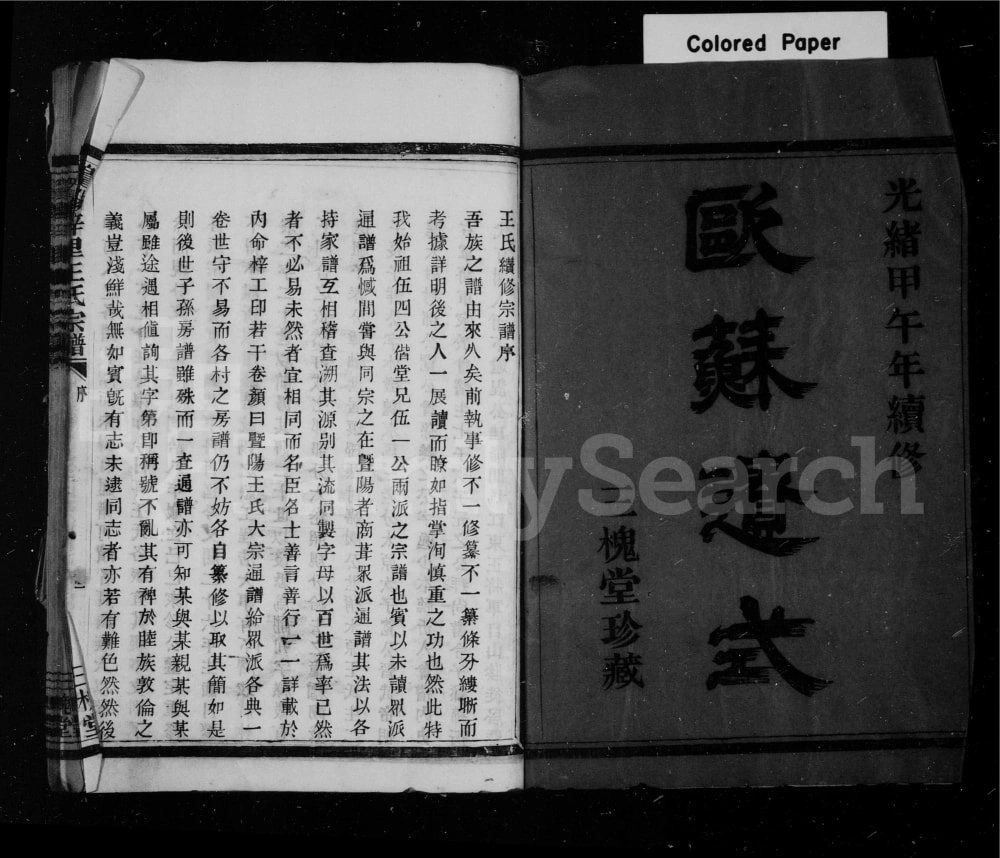 Colored Paper
光緒甲午年續修
歐蘇遺式
三槐堂珍藏
王氏續修宗譜序
吾族之譜由來久矣前執事修不一修纂不一纂條分縷晰而
考據詳明後之人一展讀而瞭如指掌洵慎重之功也然此特
我始祖伍四公偕堂兄伍一公兩派之宗譜也賓以未讀眾派
通譜爲憾間嘗與同宗之在暨陽者商葺眾派通譜其法以各
持家譜互相稽查溯其源别其流同製字母以百世爲率已然
者不必易未然者宜相同而名臣名士善言善行一一詳載於
內命梓工印若干卷顏曰暨陽王氏大宗通譜給眾派各典一
卷世守不易而各村之房譜仍不妨各自纂修以取其簡如是
則後世子孫房譜雖殊而一查通譜亦可知某與某親某與某
屬雖途遇相値詢其字第卽稱號不亂其有裨於睦族敦倫之
義豈淺鮮哉無如賓旣有志未逮同志者亦若有難色然然後
里王氏宗譜
序
一
ySearch